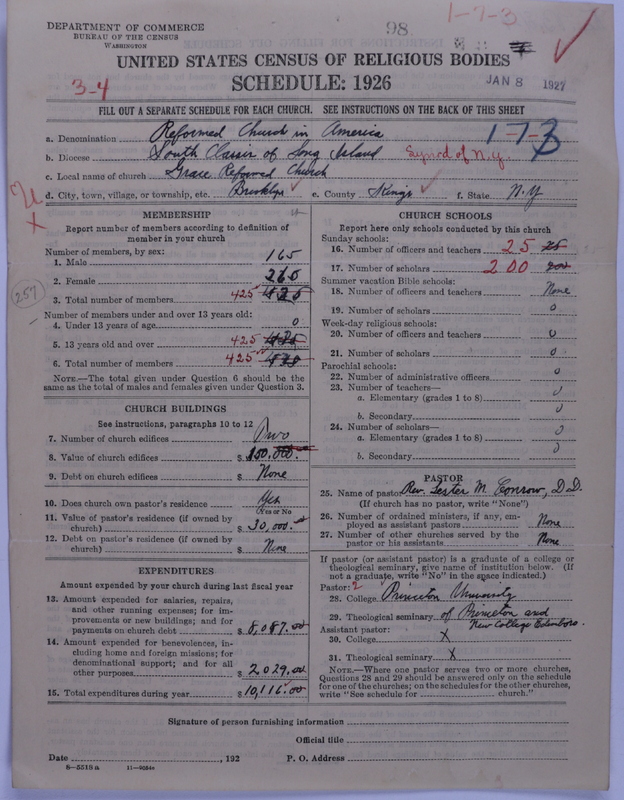 DEPARTMENT OF COMMERCE
BUREAU OF THE CENSUS
WASHINGTON
98
1-7-3
UNITED STATES CENSUS OF RELIGIOUS BODIES
SCHEDULE: 1926
JAN 8 1927
3-4
FILL OUT A SEPARATE SCHEDULE FOR EACH CHURCH. SEE INSTRUCTIONS ON THE BACK OF THIS SHEET
a. Denomination Reformed Church in America
1-7-3
b. Diocese South Classis of Long Island Synod of N.Y.
c. Local name of church Grace Reformed Church
d. City, town, village, or township, etc. Brooklyn e. County Kings f. State N.Y
MEMBERSHIP
Report number of members according to definition of member in your church
Number of members, by sex:
1. Male 165
2. Female 260
3. Total number of members 425
257
Number of members under and over 13 years old:
4. Under 13 years of age 0
5. 13 years old and over 425
6. Total number of members 425
NOTE.—The total given under Question 6 should be the same as the total of males and females given under Question 3.
CHURCH BUILDINGS
See instructions, paragraphs 10 to 12
7. Number of church edifices Two
8. Value of church edifices $ 150,000.
9. Debt on church edifices $ None
10. Does church own pastor's residence Yes
(Yes or No)
11. Value of pastor's residence (if owned by church) $ 30,000.
12. Debt on pastor's residence (if owned by church) $ None
EXPENDITURES
Amount expended by your church during last fiscal year
13. Amount expended for salaries, repairs, and other running expenses; for improvements or new buildings; and for payments on church debt $ 8,087.00
14. Amount expended for benevolences, including home and foreign missions; for denominational support; and for all other purposes $ 2,029.00
15. Total expenditures during year $ 10,116.00
CHURCH SCHOOLS
Report here only schools conducted by this church
Sunday schools:
16. Number of officers and teachers 25 25
17. Number of scholars 200 200
Summer vacation Bible schools:
18. Number of officers and teachers None
19. Number of scholars 0
Week-day religious schools:
20. Number of officers and teachers 0
21. Number of scholars 0
Parochial schools:
22. Number of administrative officers 0
23. Number of teachers—
a. Elementary (grades 1 to 8) 0
b. Secondary 0
24. Number of scholars—
a. Elementary (grades 1 to 8) 0
b. Secondary 0
PASTOR
25. Name of pastor Rev. Lester M. Conrow, D.D.
(If church has no pastor, write "None")
26. Number of ordained ministers, if any, employed as assistant pastors None
27. Number of other churches served by the pastor or his assistants None
If pastor (or assistant pastor) is a graduate of a college or theological seminary, give name of institution below. (If not a graduate, write "No" in the space indicated.)
Pastor: 2
28. College Princeton University
29. Theological seminary of Princeton and
New College Edinboro.
Assistant pastor:
30. College X
31. Theological seminary X
NOTE.—Where one pastor serves two or more churches, Questions 28 and 29 should be answered only on the schedule for one of the churches; on the schedules for the other churches, write "See schedule for church."
Signature of person furnishing information
Official title
Date , 192 P. O. Address
8-5518a